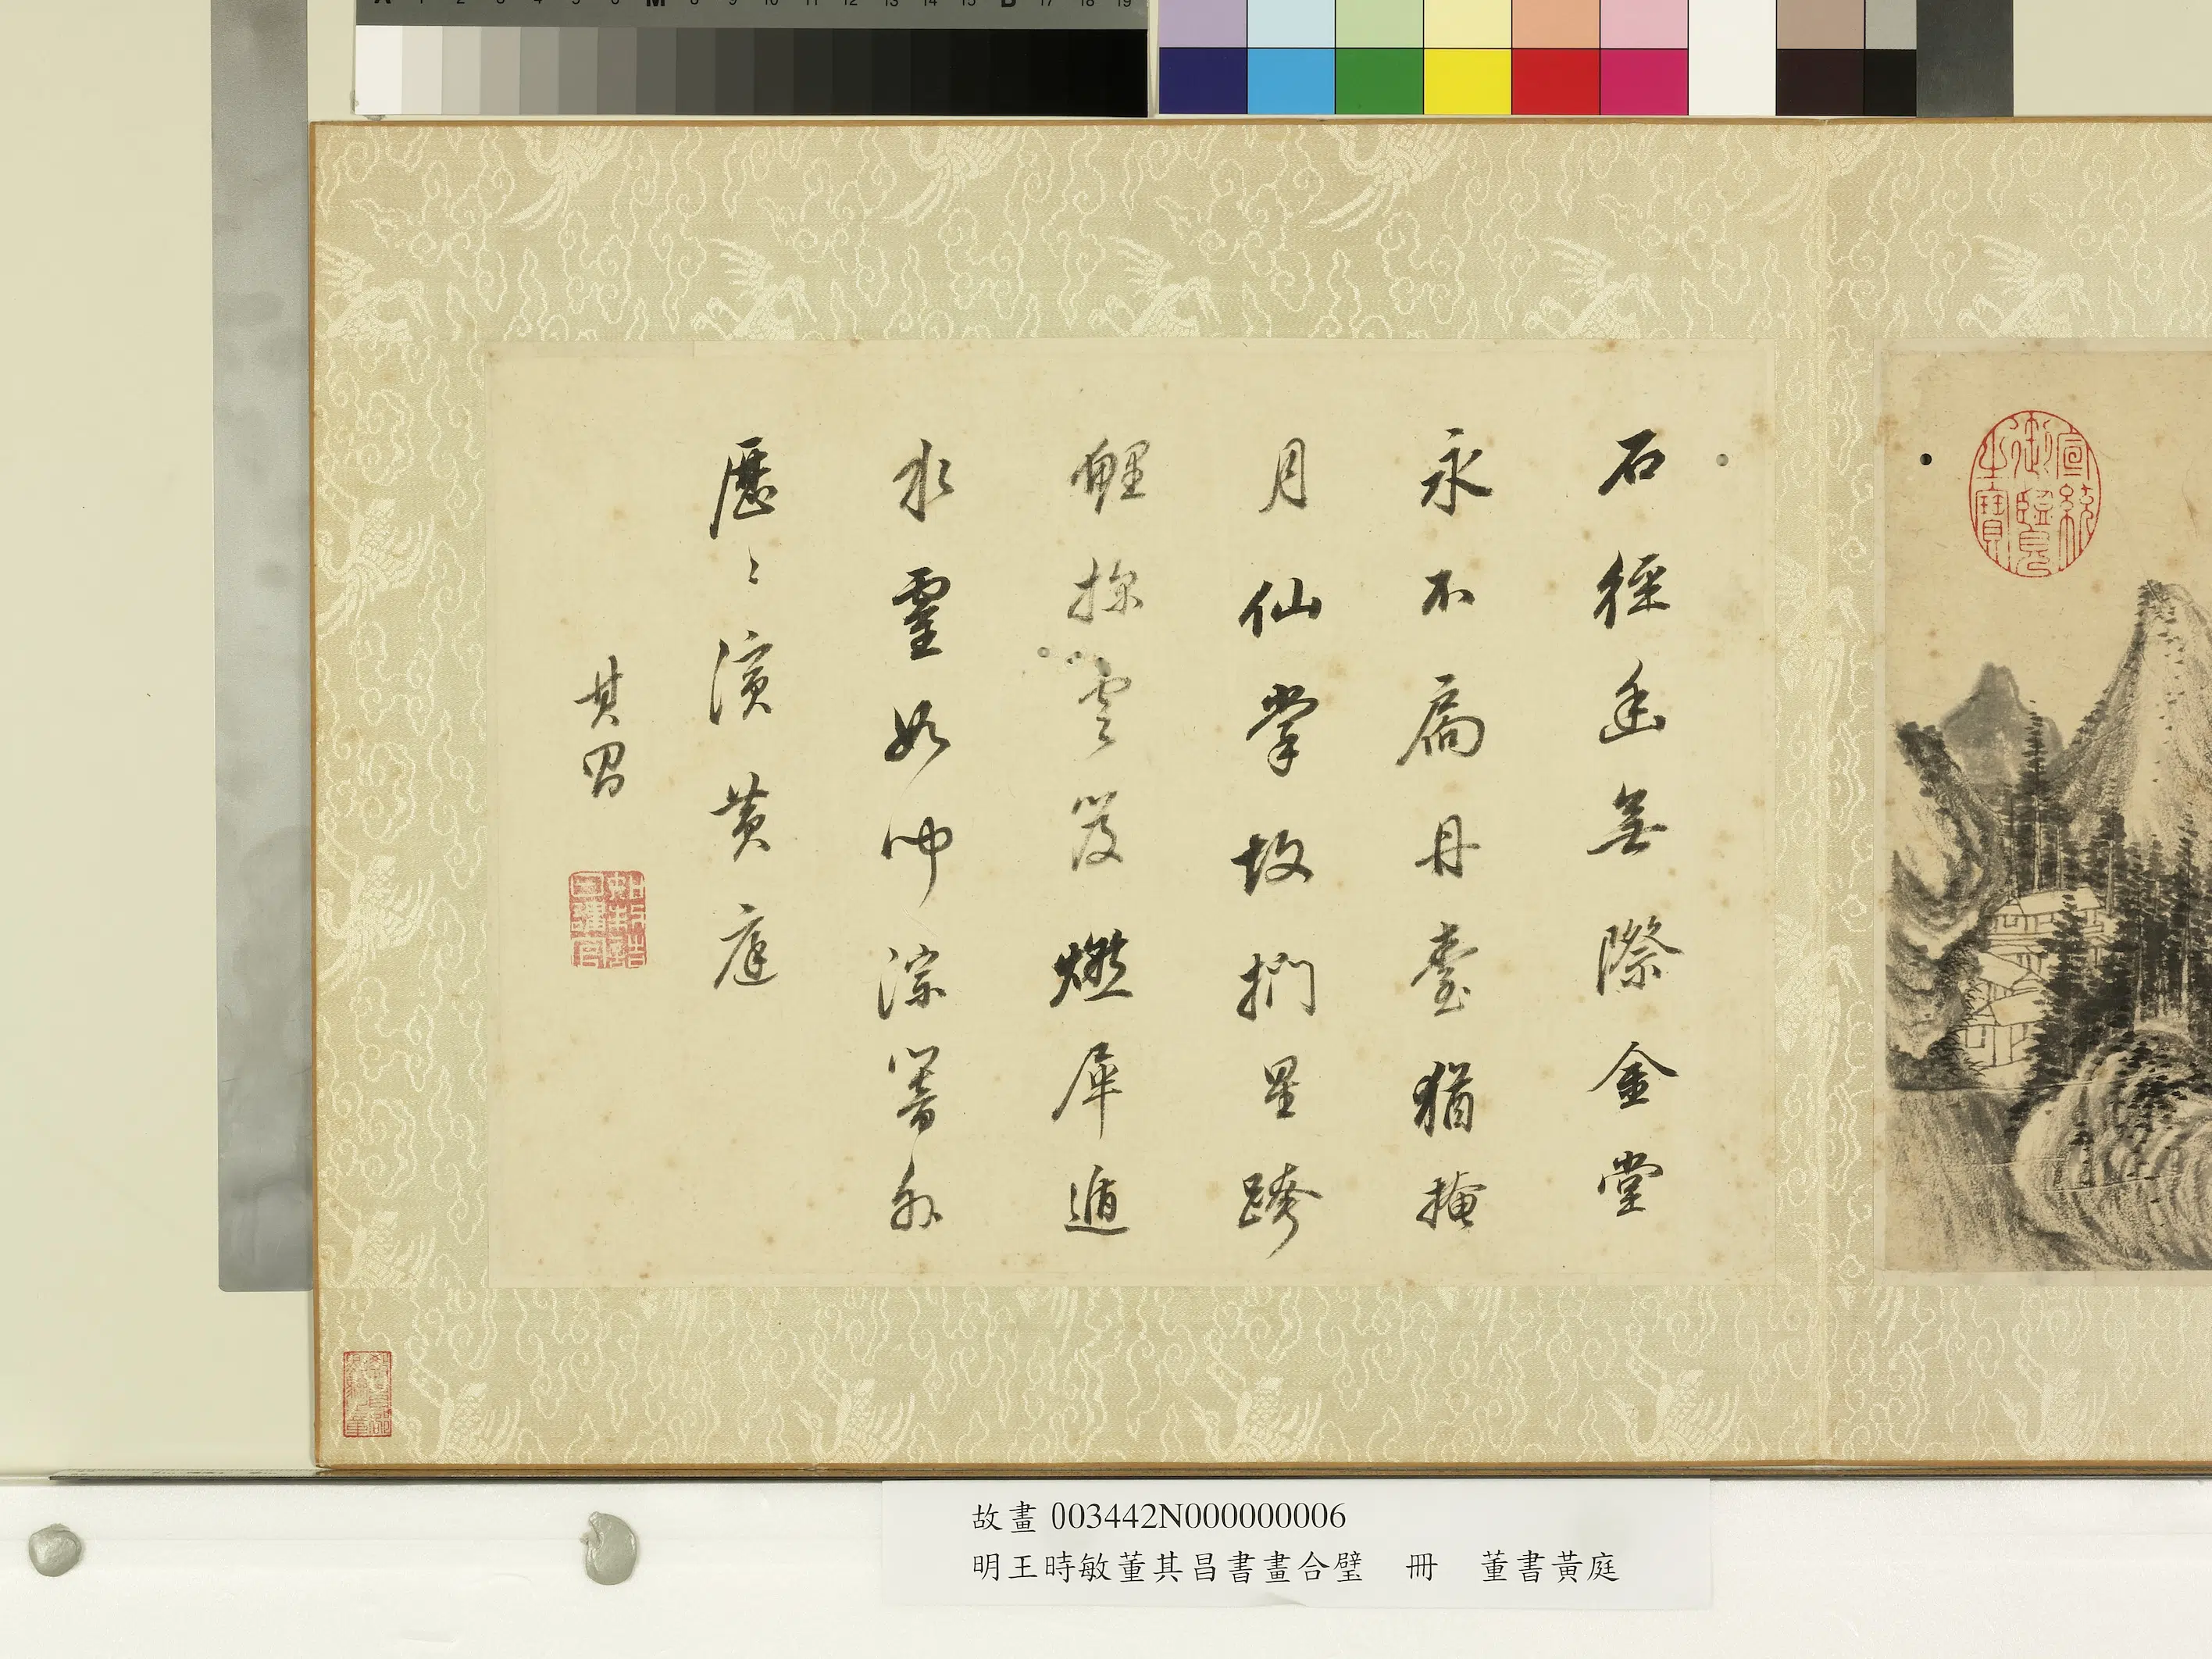 石徑迷無際金堂
永不扃丹臺猶掩
月仙掌故捫星跨
鯉探雲笈燃犀遁
水靈如聞淙響外
歷〻演黃庭
其昌
宣統
御覽
之寶
故畫 003442N000000006
明王時敏董其昌書畫合璧 冊 董書黃庭